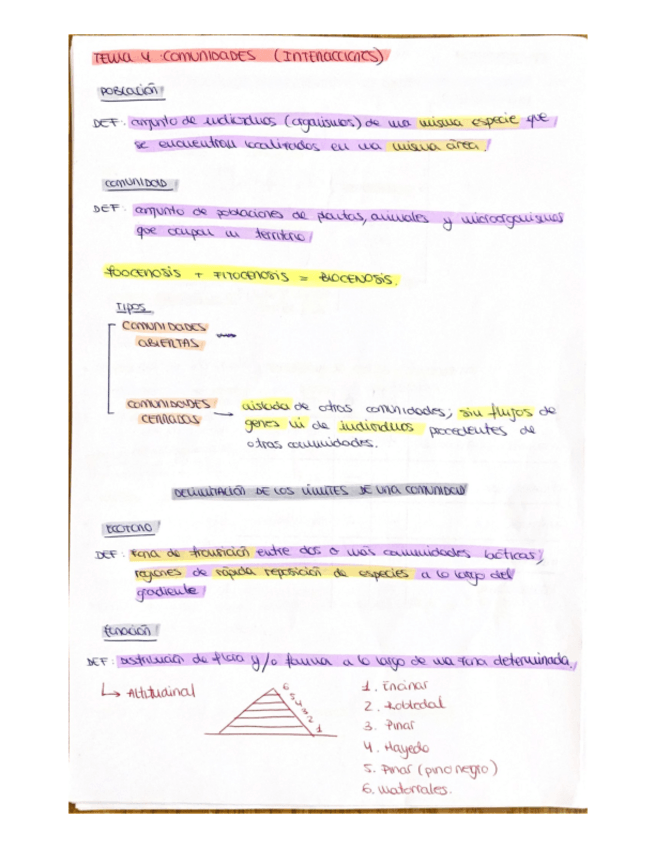 TEMA 4: COMUNIDADES (INTERACCIONES)
POBLACIÓN
DEF: conjunto de individuos (organismos) de una misma especie que
se encuentran localizados en una misma área.
COMUNIDAD
DEF: conjunto de poblaciones de plantas, animales y microorganismos
que ocupan un territorio
ZOOCENOSIS + FITOCENOSIS = BIOCENOSIS.
TIPOS
COMUNIDADES
ABIERTAS
COMUNIDADES
CERRADAS
aislada de otras comunidades; sin flujos de
genes ni de individuos procedentes de
otras comunidades.
DELIMITACIÓN DE LOS LÍMITES DE UNA COMUNIDAD
ECOTONO
DEF: zona de transición entre dos o más comunidades bióticas;
regiones de rápida reposición de especies a lo largo del
gradiente
ZONACIÓN
DEF: Distribución de flora y/o fauna a lo largo de una zona determinada.
↳ Altitudinal
6
5
4
3
2
1
1. Encinar
2. Robledal
3. Pinar
4. Hayedo
5. Pinar (pino negro)
6. Matorrales.